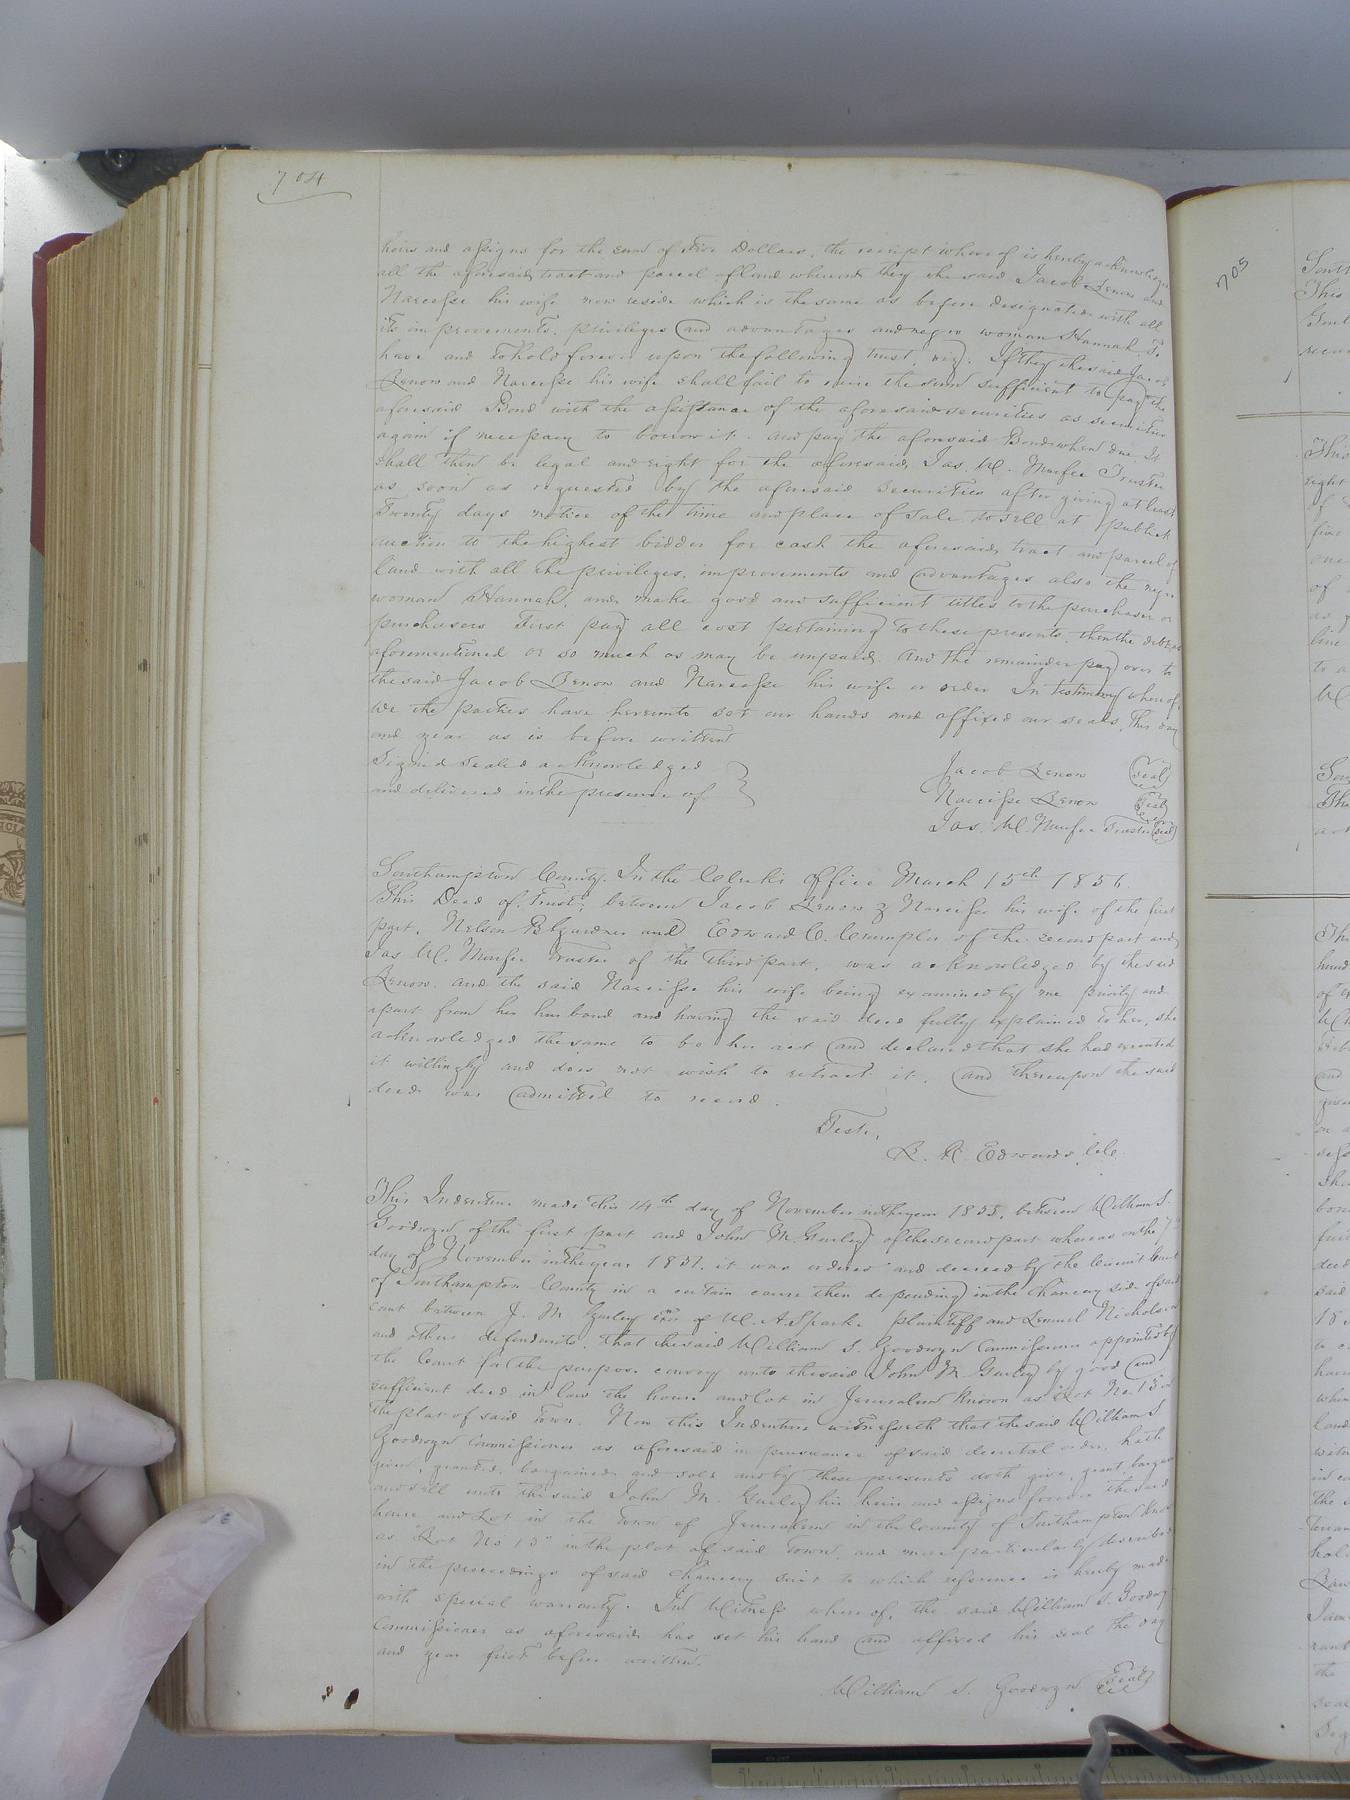 704
heirs and assigns for the sum of Five Dollars, the receipt whereof is hereby acknowledged
all the aforesaid tract and parcel of land whereon they the said Jacob Lenow and
Narcisse his wife now reside which is the same as before designated with all
its improvements, privileges and advantages and negro woman Hannah To
have and to hold forever upon the following trust, viz. If they the said Jacob
Lenow and Narcisse his wife shall fail to raise the sum sufficient to pay the
aforesaid Bond with the assistance of the aforesaid securities as securities
again if necessary to borrow it. and pay the aforesaid Bond when due. It
shall then be legal and right for the aforesaid Jas. W. Murfee Trustee
as soon as requested by the aforesaid securities after giving at least
Twenty days notice of the time and place of sale to sell at publick
auction to the highest bidder for cash the aforesaid tract and parcel of
land with all the privileges, improvements and advantages also the negro
woman Hannah, and make good and sufficient titles to the purchaser or
purchasers First pay all cost pertaining to these presents, then the debt
aforementioned or so much as may be unpaid. And the remainder pay over to
the said Jacob Lenow and Narcisse his wife or order In testimony whereof,
we the parties have hereunto set our hands and affixed our seals, this day
and year as is before written
Signed sealed acknowledged
and delivered in the presence of
Jacob Lenow (seal)
Narcisse Lenow (seal)
Jas. W. Murfee Trustee (seal)
Southampton County. In the Clerk's Office March 15th 1856
This Deed of Trust, between Jacob Lenow & Narcisse his wife of the first
part, Nelson B Gardner and Edward C. Crumpler of the second part and
Jas W. Murfee Trustee of the third part, was acknowledged by the said
Lenow. and the said Narcisse his wife being examined by me privily and
apart from her husband and having the said deed fully explained to her, she
acknowledged the same to be her act and declared that she had executed
it willingly and does not wish to retract it, and thereupon the said
deed was admitted to record.
Teste,
L. R. Edwards, Clk
This Indenture made this 14th day of November in the year 1855, between William S.
Goodwyn of the first part and John M. Gurley of the second part whereas on the
day of November in the year 1851. it was ordered and decreed by the Circuit Court
of Southampton County in a certain cause then depending in the Chancery side of said
court between J. M Gurley exor of W. A. Spark. plaintiff and Lemuel Nicholson
and others defendants, that the said William S. Goodwyn Commissioner appointed by
the Court for the purpose convey unto the said John M. Gurley by good and
sufficient deed in law the house and lot in Jerusalem known as Lot No 13 in
the plat of said Town. Now this Indenture witnesseth that the said William S
Goodwyn Commissioner as aforesaid in pursuance of said decretal order, hath
given, granted, bargained and sold and by these presents doth give, grant bargain
and sell unto the said John M. Gurley his heirs and assigns forever the said
house and Lot in the Town of Jerusalem in the County of Southampton known
as "Lot No 13" in the plat of said Town, and more particularly described
in the proceedings of said Chancery suit to which reference is hereby made
with special warranty. In Witness whereof, the said William S. Goodwyn
Commissioner as aforesaid has set his hand and affixed his seal the day
and year first before written.
William S. Goodwyn (Seal)
705